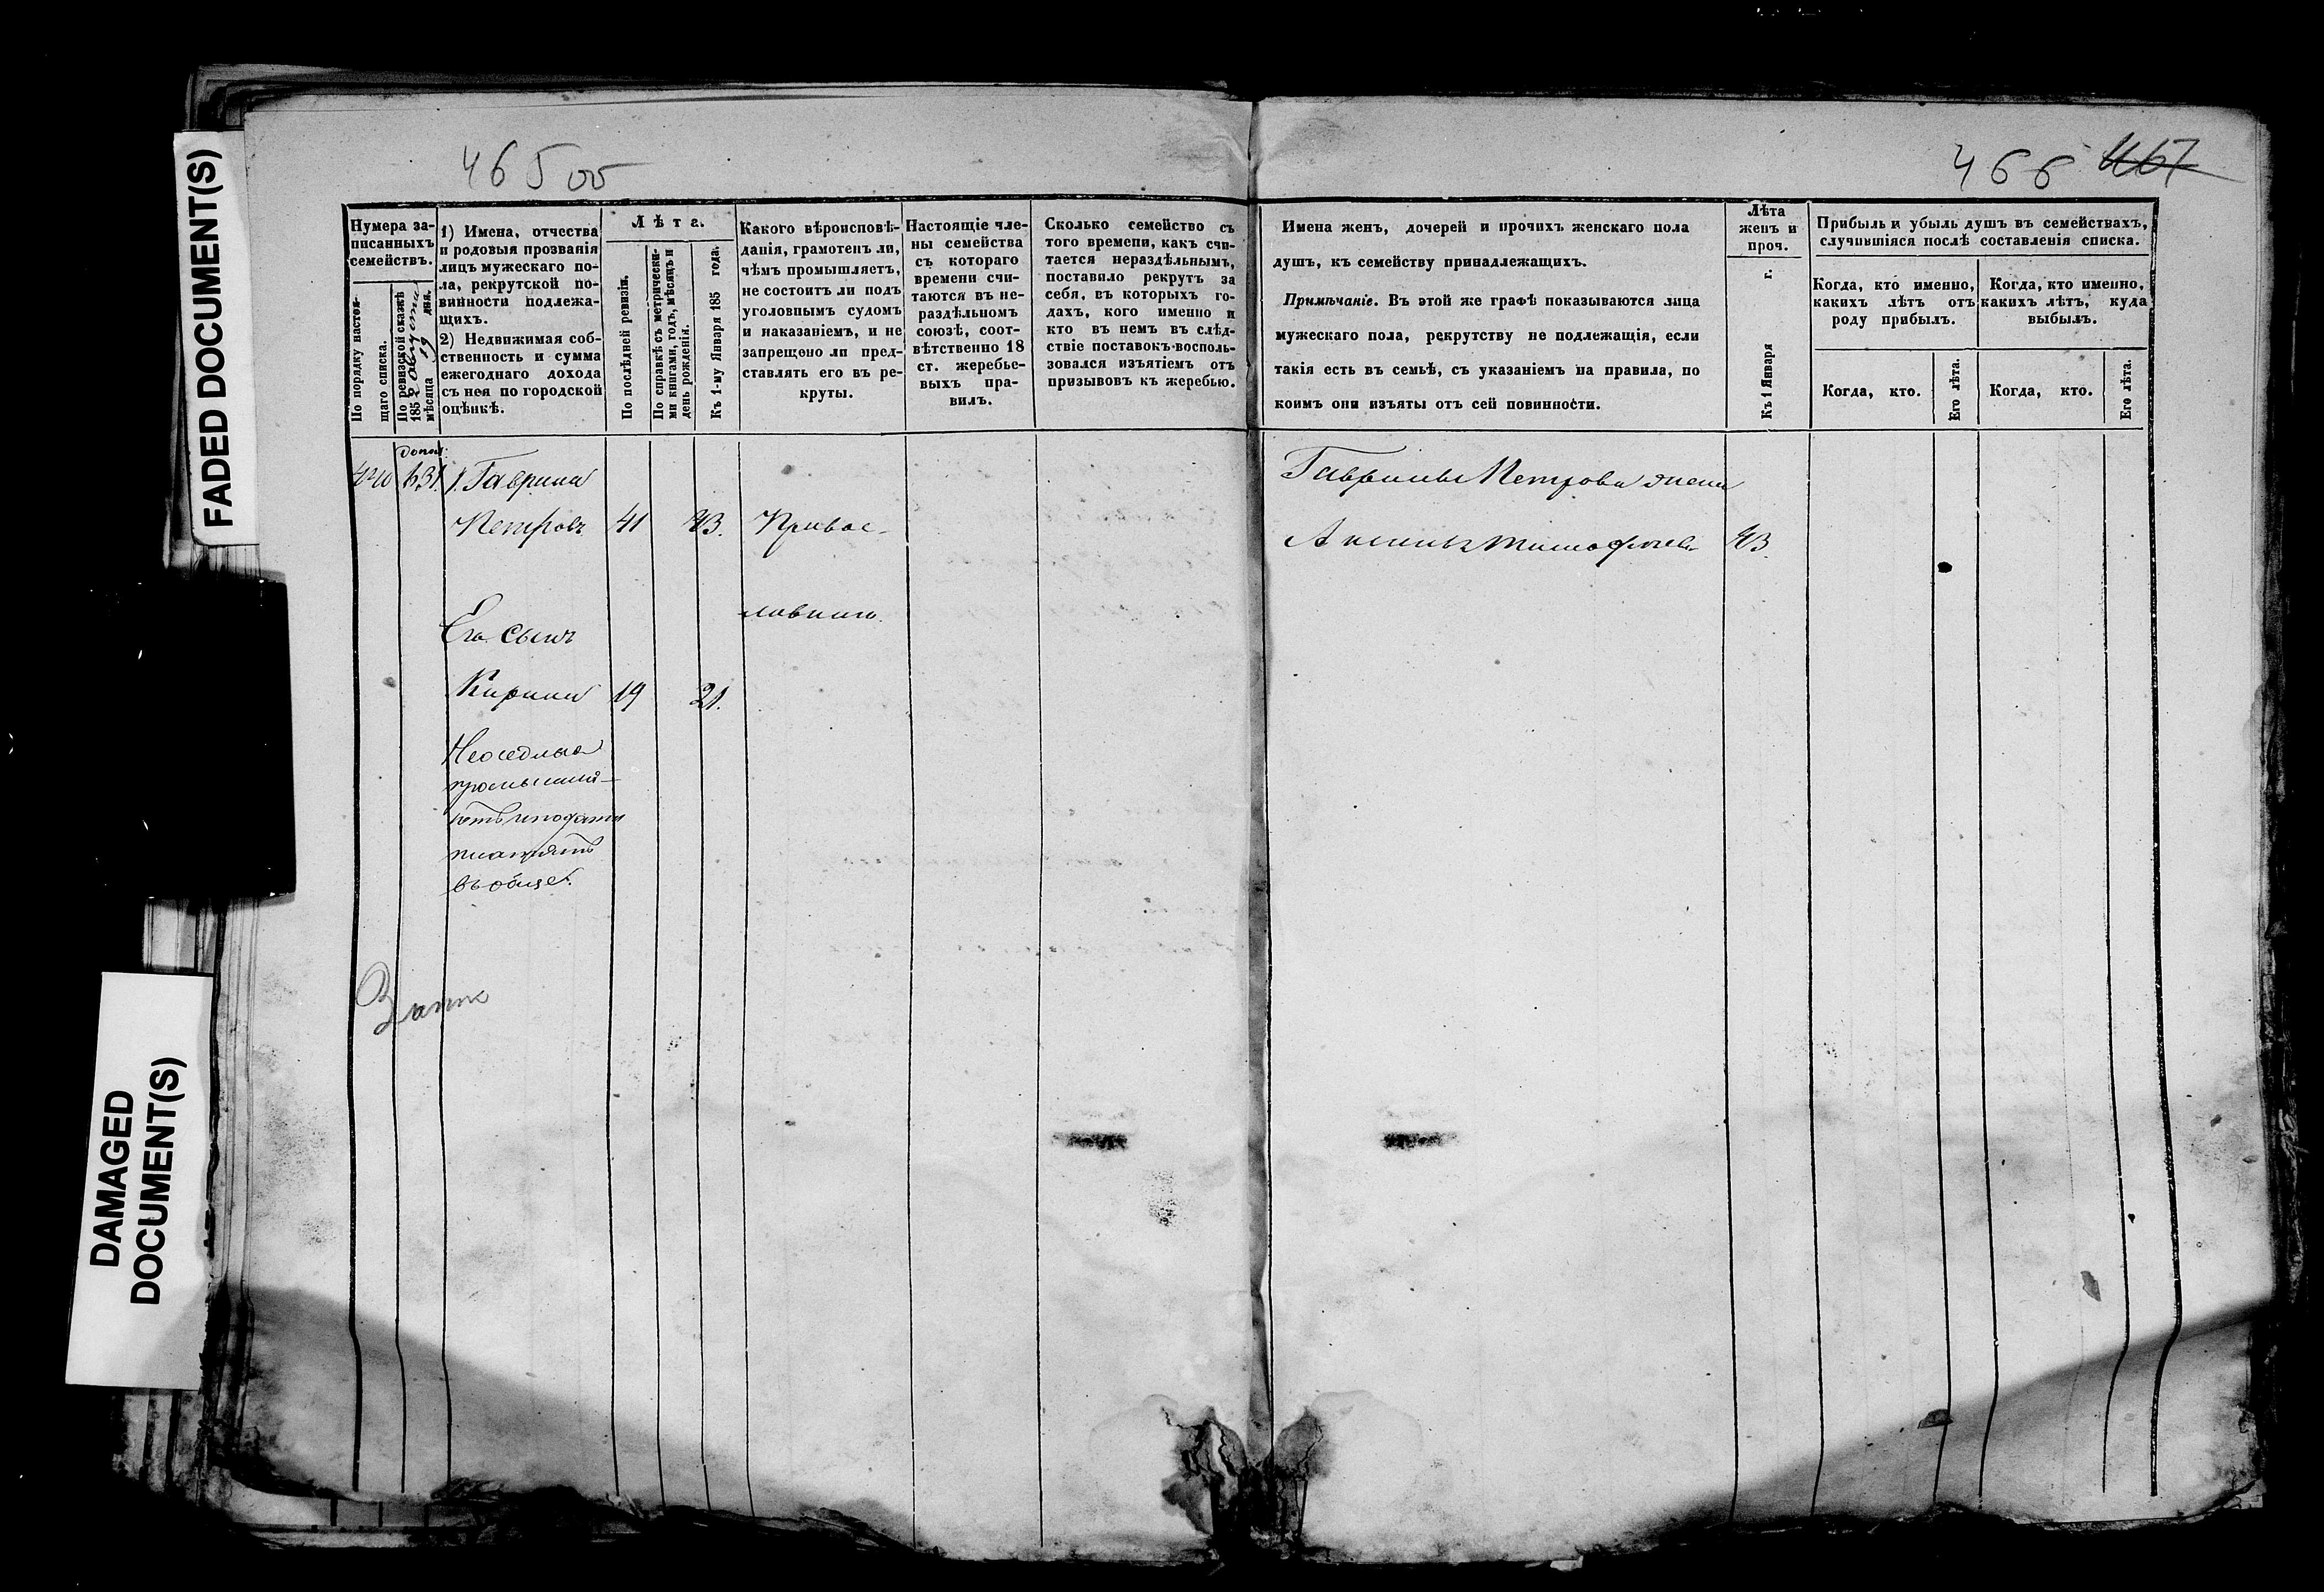 FADED DOCUMENT(S)
DAMAGED
DOCUMENT(S)
465 об
466 467
Нумера за-
писанныхъ
семействъ.
По порядку настоя-
щаго списка.
По ревизской сказкѣ
185 Августа
мѣсяца 19 дня.
1) Имена, отчества
и родовыя прозванія
лицъ мужескаго по-
ла, рекрутской по-
винности подлежа-
щихъ.
2) Недвижимая соб-
ственность и сумма
ежегоднаго дохода
съ нея по городской
оцѣнкѣ.
Лѣта.
По послѣдней ревизіи.
По справкѣ съ метрически-
ми книгами, годъ, мѣсяцъ и
день рожденія.
Къ 1-му Января 185 года.
Какого вѣроисповѣ-
данія, грамотенъ ли,
чѣмъ промышляетъ,
не состоитъ ли подъ
уголовнымъ судомъ
и наказаніемъ, и не
запрещено ли пред-
ставлять его въ ре-
круты.
Настоящіе чле-
ны семейства
съ котораго
времени счи-
таются въ не-
раздѣльномъ
союзѣ, соот-
вѣтственно 18
ст. жеребье-
выхъ пра-
вилъ.
Сколько семейство съ
того времени, какъ счи-
тается нераздѣльнымъ,
поставило рекрутъ за
себя, въ которыхъ го-
дахъ, кого именно и
кто въ немъ въ слѣд-
ствіе поставокъ восполь-
зовался изъятіемъ отъ
призывовъ къ жеребью.
Имена женъ, дочерей и прочихъ женскаго пола
душъ, къ семейству принадлежащихъ.
Примѣчаніе. Въ этой же графѣ показываются лица
мужескаго пола, рекрутству не подлежащія, если
такія есть въ семьѣ, съ указаніемъ на правила, по
коимъ они изъяты отъ сей повинности.
Лѣта
женъ и
проч.
Къ 1 Января г.
Прибыль и убыль душъ въ семействахъ,
случившіяся послѣ составленія списка.
Когда, кто именно,
какихъ лѣтъ отъ
роду прибылъ.
Когда, кто именно,
какихъ лѣтъ, куда
выбылъ.
Когда, кто.
Его лѣта.
Когда, кто.
Его лѣта.
допол:
631. 1. Гаврила
Петровъ 41 43. Правос-
лавнаго.
Его сынъ
Кирила 19 21.
Неоседлые
промышля-
ютъ и подати
платятъ
въ общес.
Гаврилы Петрова жена
Аксинья Тимофеева 43.